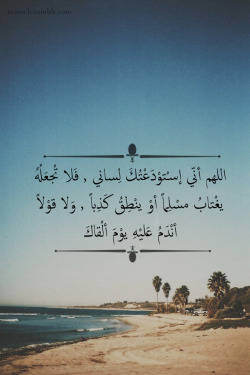 اللهم أنّي إستَودَعْتُكَ لِساني , فَلا تُجعَلْهُ
يغْتابُ مسْلِماً أوْ ينْطِقُ كَذِباً , وَلا قوْلاً
أنْدَمُ عَليْهِ يوْمَ ألْقاكَ